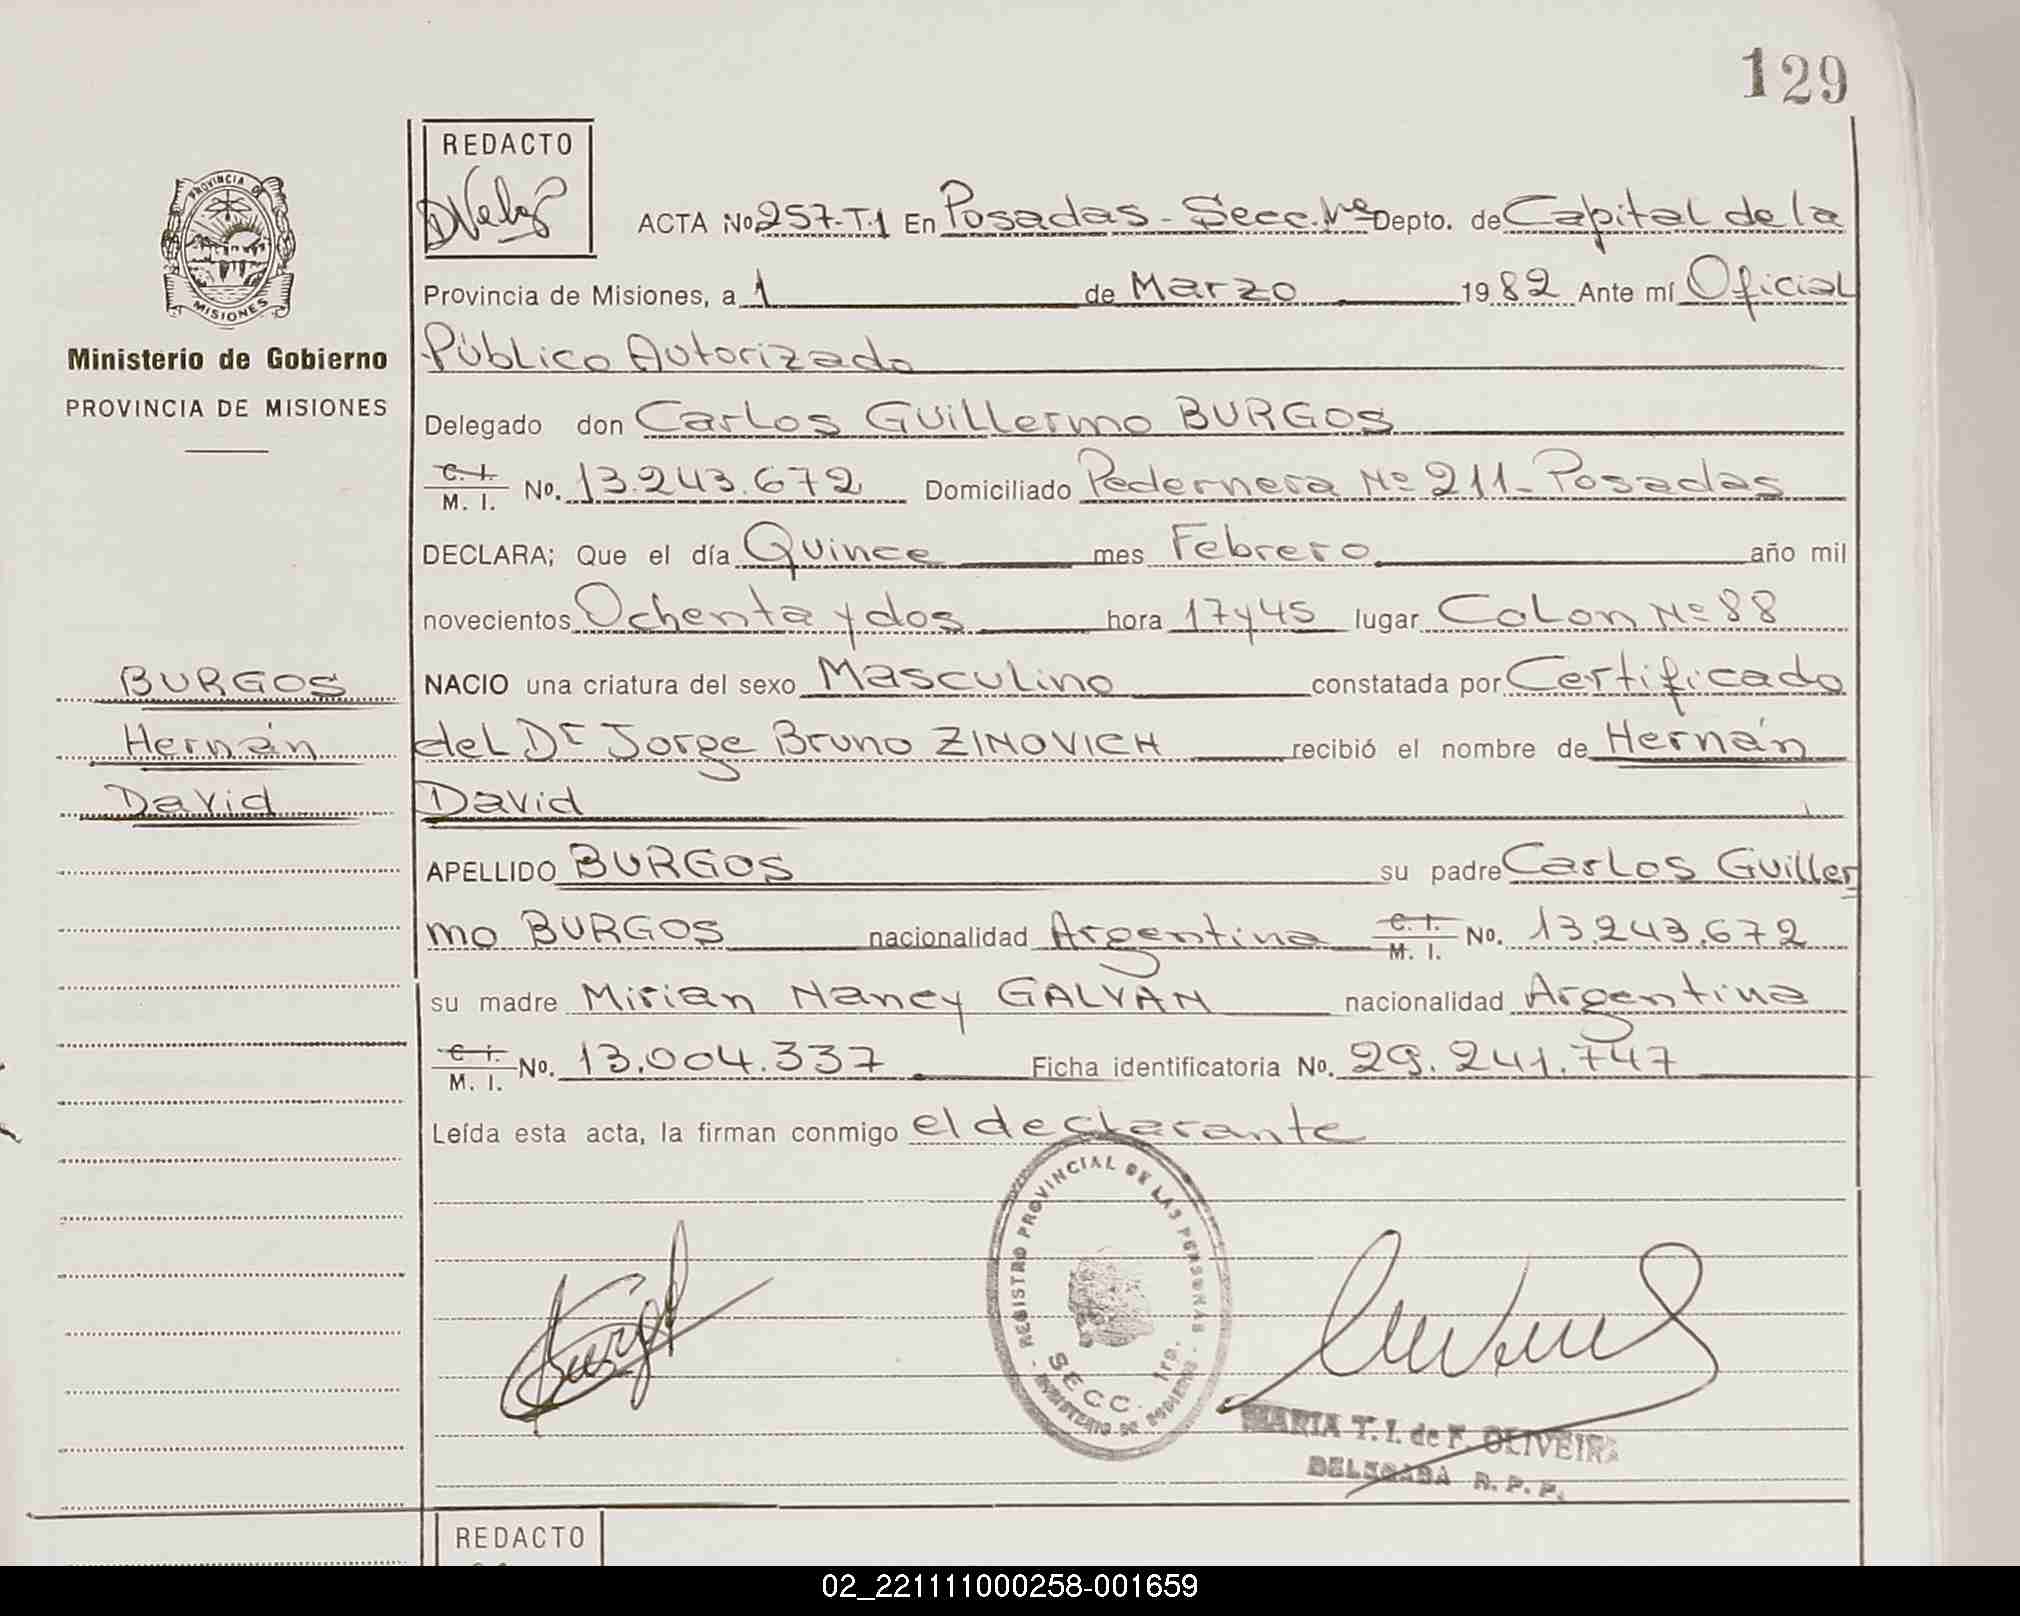 129
REDACTO
PROVINCIA DE
MISIONES
Ministerio de Gobierno
PROVINCIA DE MISIONES
ACTA No 257-T.1 En Posadas - Secc. 1ra Depto. de Capital de la
Provincia de Misiones, a 1 de Marzo 1982 Ante mí Oficial
Público Autorizado
Delegado don Carlos Guillermo BURGOS
C. I. M. I. No. 13.243.672 Domiciliado Pedernera Nº 211 - Posadas
DECLARA; Que el día Quince mes Febrero año mil
novecientos Ochenta y dos hora 17 y 45 lugar Colon Nº 88
BURGOS
Hernán
David
NACIO una criatura del sexo Masculino constatada por Certificado
del Dr Jorge Bruno ZINOVICH recibió el nombre de Hernán
David
APELLIDO BURGOS su padre Carlos Guiller
mo BURGOS nacionalidad Argentina C. I. M. I. No. 13.243.672
su madre Mirian Nancy GALVAN nacionalidad Argentina
C. I. M. I. No. 13.004.337 Ficha identificatoria No. 29.241.747
Leída esta acta, la firman conmigo el declarante
REGISTRO PROVINCIAL DE LAS PERSONAS
SECC. 1ra.
MINISTERIO DE GOBIERNO
MARIA T. I. de F. OLIVEIRA
DELEGADA R. P. P.
REDACTO
02_221111000258-001659